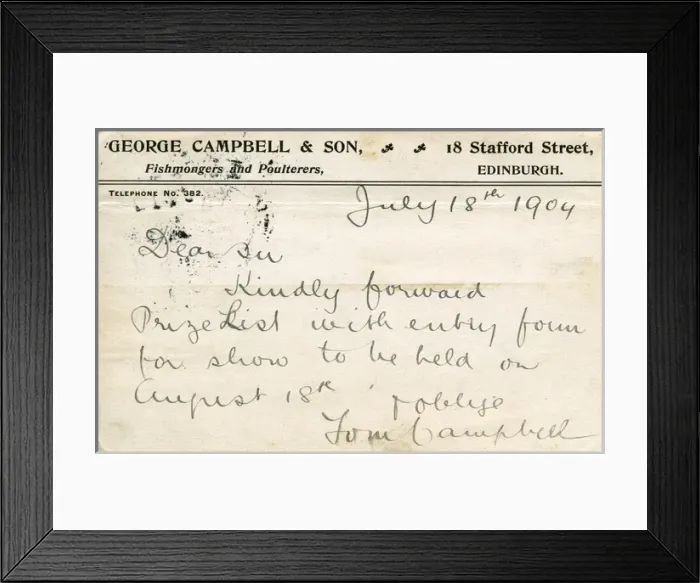 GEORGE CAMPBELL & SON, 18 Stafford Street,
Fishmongers and Poulterers, EDINBURGH.
TELEPHONE No. 382.
July 18th 1904
Dear Sir
Kindly forward
Prize List with entry form
for show to be held on
August 18th & oblige
Tom Campbell